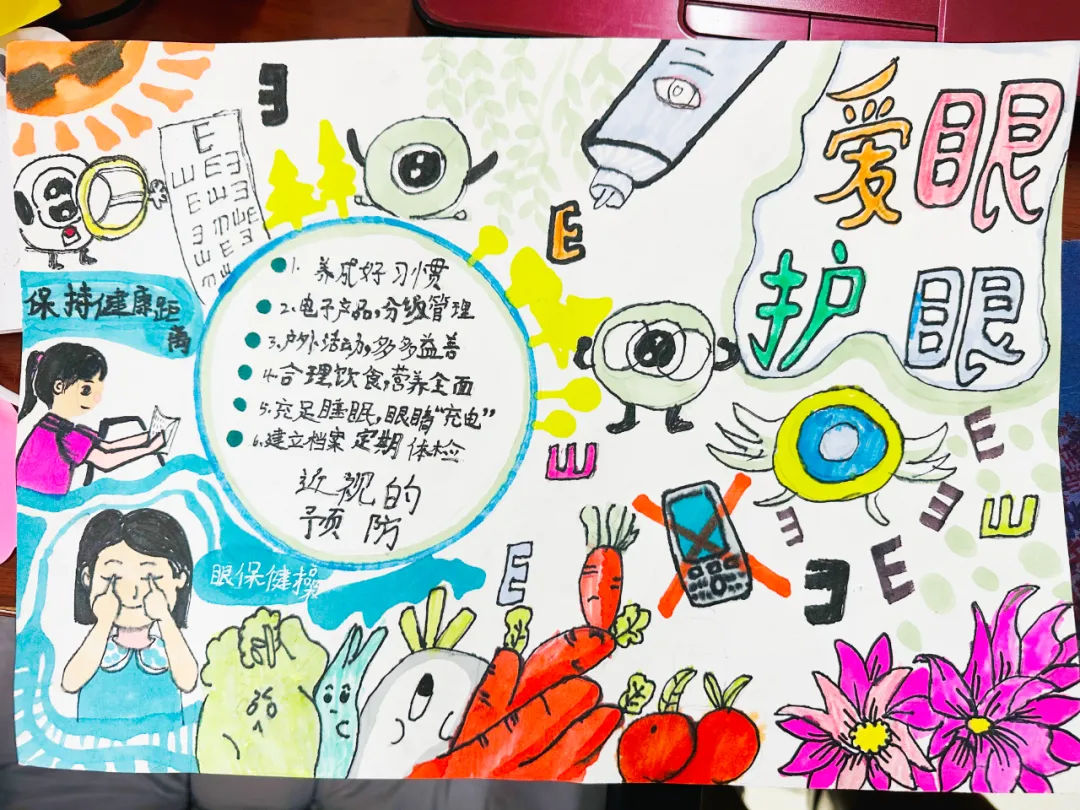 爱眼
护眼
E
E
E
保持健康距离
1. 养成好习惯
2. 电子产品,分级管理
3. 户外活动,多多益善
4. 合理饮食,营养全面
5. 充足睡眠,眼睛“充电”
6. 建立档案 定期体检
近视的
预防
眼保健操
E
E
E
E
E
E
E
E
E